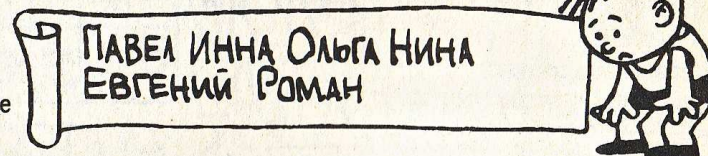 ПАВЕЛ ИННА ОЛЬГА НИНА
ЕВГЕНИЙ РОМАН
е